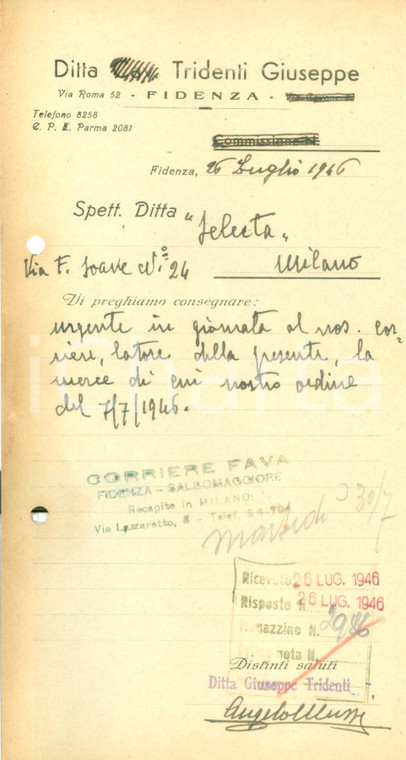 Ditta Tridenti Giuseppe
Via Roma 52 - FIDENZA -
Telefono 8258
C. P. E. Parma 2081
Commissione N.
Fidenza, 26 Luglio 1946
Spett. Ditta "Selecta"
Via F. Soave N.° 24 Milano
Vi preghiamo consegnare:
urgente in giornata al nos. cor-
riere, latore della presente, la
merce di cui nostro ordine
del 7/7/1946.
CORRIERE FAVA
FIDENZA - SALSOMAGGIORE
Recapito in MILANO:
Via Lazzaretto, 8 - Telef.
30/7
Martedì
Ricevuto 26 LUG. 1946
Risposto 26 LUG. 1946
Magazzino N.
Distinti saluti
Ditta Giuseppe Tridenti